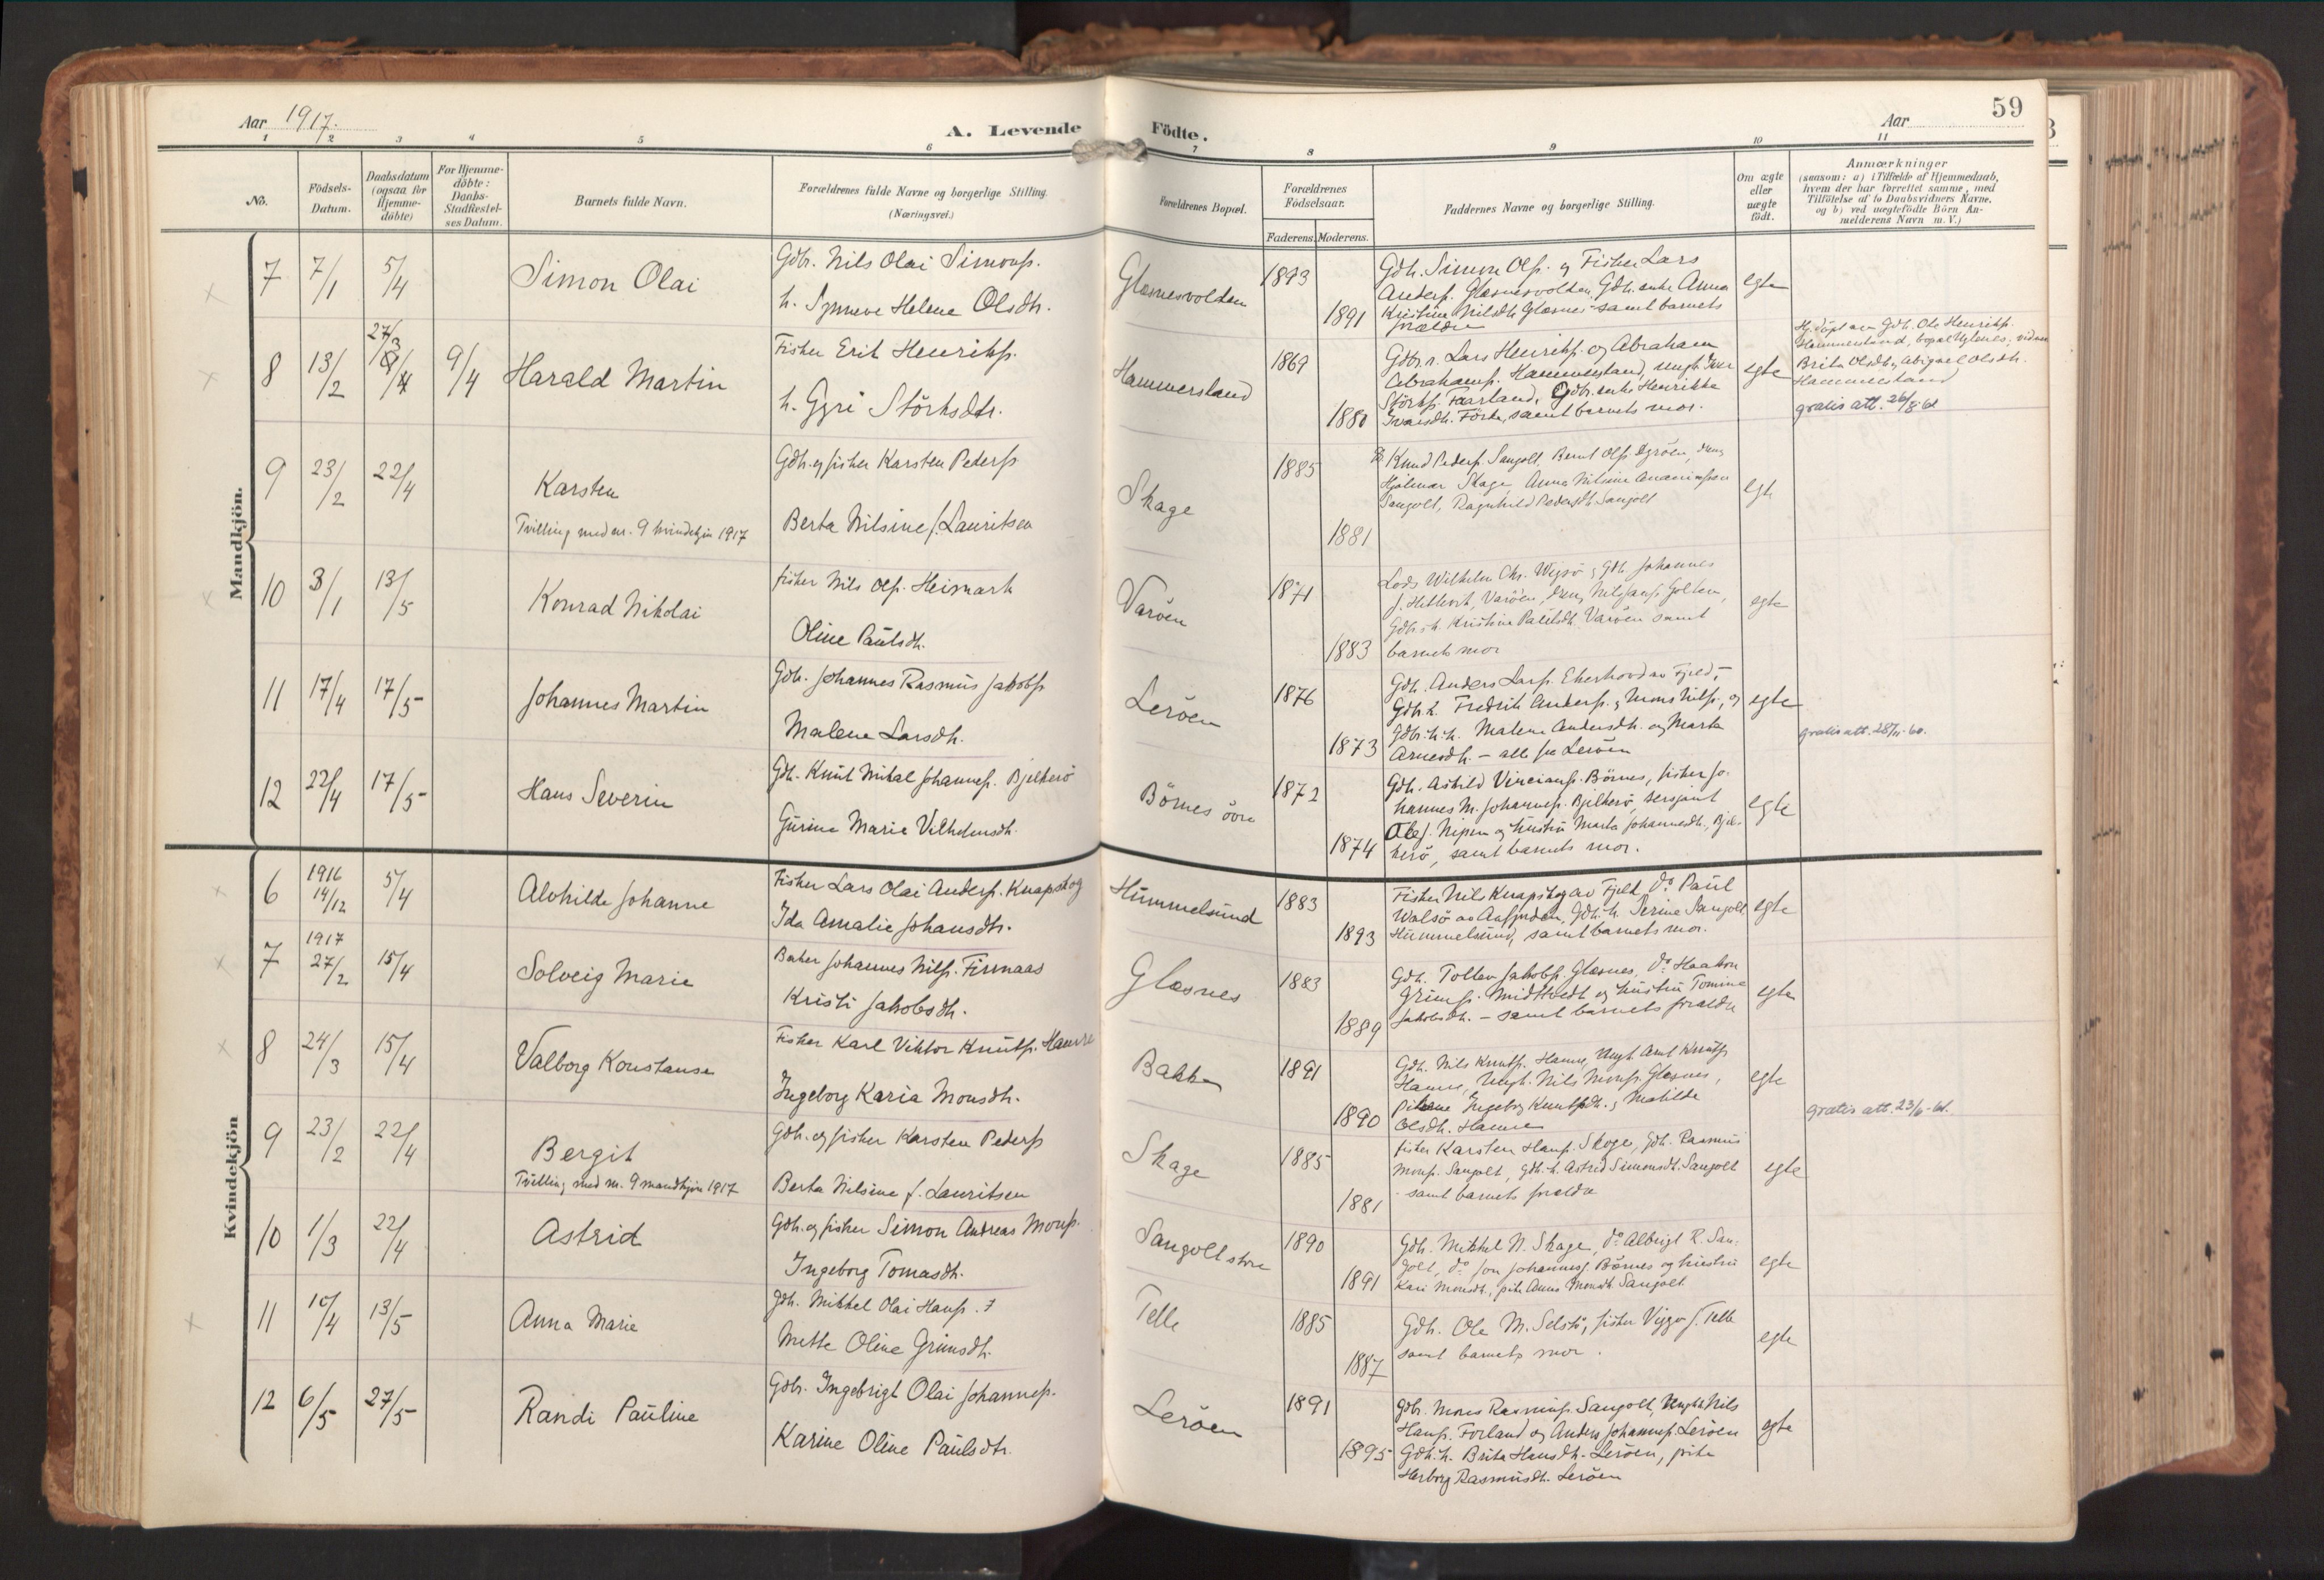 Aar 1917.
A. Levende Födte.
Aar
59
1 2 3 4 5 6 7 8 9 10 11
No.
Födsels-Datum.
Daabsdatum (ogsaa for Hjemme-döbte)
For Hjemme-döbte: Daabs-Stadfestel-ses Datum.
Barnets fulde Navn.
Forældrenes fulde Navne og borgerlige Stilling. (Næringsvei.)
Forældrenes Bopæl.
Forældrenes Födselsaar.
Faderens. Moderens.
Faddernes Navne og borgerlige Stilling.
Om ægte eller uægte födt.
Anmærkninger
(saasom: a) i Tilfælde af Hjemmedaab,
hvem der har forrettet samme, med
Tilföielse af to Daabsvidners Navne,
og b) ved uægtefödte Börn An-
melderens Navn m. V.)
Mandkjön.
7 7/1 5/4 Simon Olai
Gdbr. Nils Olai Simonss.
h. Synneve Helene Olsdtr.
Glesnesvolden 1893 1891
Gdb. Simon Olss. og Fisker Lars
Anderss. Glesnesvolden, Gdb. enke Anna
Kristine Nilsdtr. Glesnes samt barnets
forældre
egte
8 13/2 27/3 9/4 Harald Martin
Fisker Erik Henrikss.
h. Gyri Störksdtr.
Hammersland 1869 1880
Gdbr. Lars Henrikss. og Abraham
Abrahamss. Hammersland, ungk. Iver
Störkss. Faarland, Gdbr. enke Henrikke
Ivarsdtr. Förde, samt barnets mor.
egte
Hj.döpt av Gdb. Ole Henrikss.
Hammersland,
Brita Olsdtr, Abigael Olsdtr.
Hammersland
gratis att. 26/8-61
9 23/2 22/4 Karsten
Tvilling med nr. 9 kvindekjön 1917
Gdb. og fisker Karsten Pederss
Berta Nilsine f. Lauritsen
Skage 1885 1881
Knud Pederss. Sangolt, Bernt Olss Dyröen, dreng
Hjalmar Skage Anna Nilsine
Sangolt, Ragnhild Pedersdtr. Sangolt
egte
10 3/1 13/5 Konrad Nikolai
fisker Nils Olss. Heimark
Oline Paulsdtr.
Varöen 1871 1883
Lods Wilhelm Chr. Wigsö, Gdb. Johannes
J. Hetlevik, Varöen, dreng Nils Golten,
Gdbr. h. Kristine Paulsdtr. Varöen samt
barnets mor
egte
11 17/4 17/5 Johannes Martin
Gdb. Johannes Rasmus Jakobss
Malene Larsdtr.
Leröen 1876 1873
Gdb. Anders Larss. Ekerhovd av Fjeld,
Gdb. k. Fredrik Anderss. Mons Nilss., og
Gdbr. h. h. Malene Andersdtr. og Marta
Arnesdtr. - alle fra Leröen
egte
gratis att. 28/11-60.
12 22/4 17/5 Hans Severin
Gdb. Knut Mikal Johanness. Bjelkerö
Gurine Marie Vilhelmsdtr.
Börnes övre 1872 1874
Gdb. Askild Börnes, fisker Jo-
hannes M. Johanness. Bjelkerö, sersjant
Ole J. Nipen og hustru Marta Johannesdtr., Bjel-
kerö, samt barnets mor.
egte
Kvindekjön
6 1916 14/12 5/4 Alvhilde Johanne
Fisker Lars Olai Anderss. Knapskog
Ida Amalie Johansdtr.
Hummelsund 1883 1893
Fisker Nils Knapskog av Fjeld, do Paul
Walsö av Aafjorden, Gdb. h. Serine Sangolt
Hummelsund, samt barnets mor.
egte
1917
7 27/2 15/4 Solveig Marie
Baker Johannes Nilss. Finnaas
Kristi Jakobsdtr.
Glesnes 1883 1889
Gdb. Tollev Jakobss. Glesnes, do Haakon
Grimss. Midttveidt og hustru Tomine
Jakobsdtr. - samt barnets forældre
egte
8 24/3 15/4 Valborg Konstanse
Fisker Karl Viktor Knutss. Hamre
Ingeborg Karia Monsdtr.
Bakken 1891 1890
Gdb. Nils Knutss. Hamre, Ungk. Amt Knutss
Hamre, Ungk. Nils Monss. Glesnes,
Pikene Ingeborg Knutsdtr. og Matilde
Olsdtr. Hamre
egte
gratis att. 23/6-61.
9 23/2 22/4 Bergit
Tvilling med nr. 9 mandkjön 1917
Gdb. og fisker Karsten Pederss
Berta Nilsine f. Lauritsen
Skage 1885 1881
fisker Karsten Hanss. Skoge, Gdb. Rasmus
Monss. Sangolt, Gdb. h. Astrid Simonsdtr. Sangolt
samt barnets forældre
egte
10 1/3 22/4 Astrid
Gdb. og fisker Simon Andreas Monss.
Ingeborg Tomasdtr.
Sangolt store 1890 1891
Gdb. Mikkel N. Skage, do Albrigt R. San-
golt, do Jon Johanness. Börnes og hustru
Kari Monsdtr., pike Anna Monsdtr Sangolt
egte
11 10/4 13/5 Anna Marie
Gdb. Mikkel Olai Hanss.
Mette Oline Grimsdtr.
Telle 1885 1887
Gdb. Ole M. Selstö, fisker Viggo J. Telle
samt barnets mor.
egte
12 6/5 27/5 Randi Pauline
Gdb. Ingebrigt Olai Johanness.
Karine Oline Paulsdtr.
Leröen 1891 1895
Gdb. Mons Rasmuss. Sangolt, Ungk. Nils
Hanss. Forland og Anders Johanness. Leröen
Gdb. h. Brita Hansdtr. Leröen, pike
Herborg Rasmusdtr. Leröen
egte